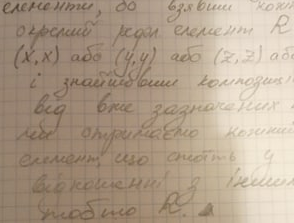 елементи, бо взявши кожн
окремий рядол елемент R
(x,x) або (y,y) або (z,z) або
і знайшовши композицію
від вже зазначених
ми отримаємо кожний
елемент, що стоїть у
відношенні з іншим
тобто R.